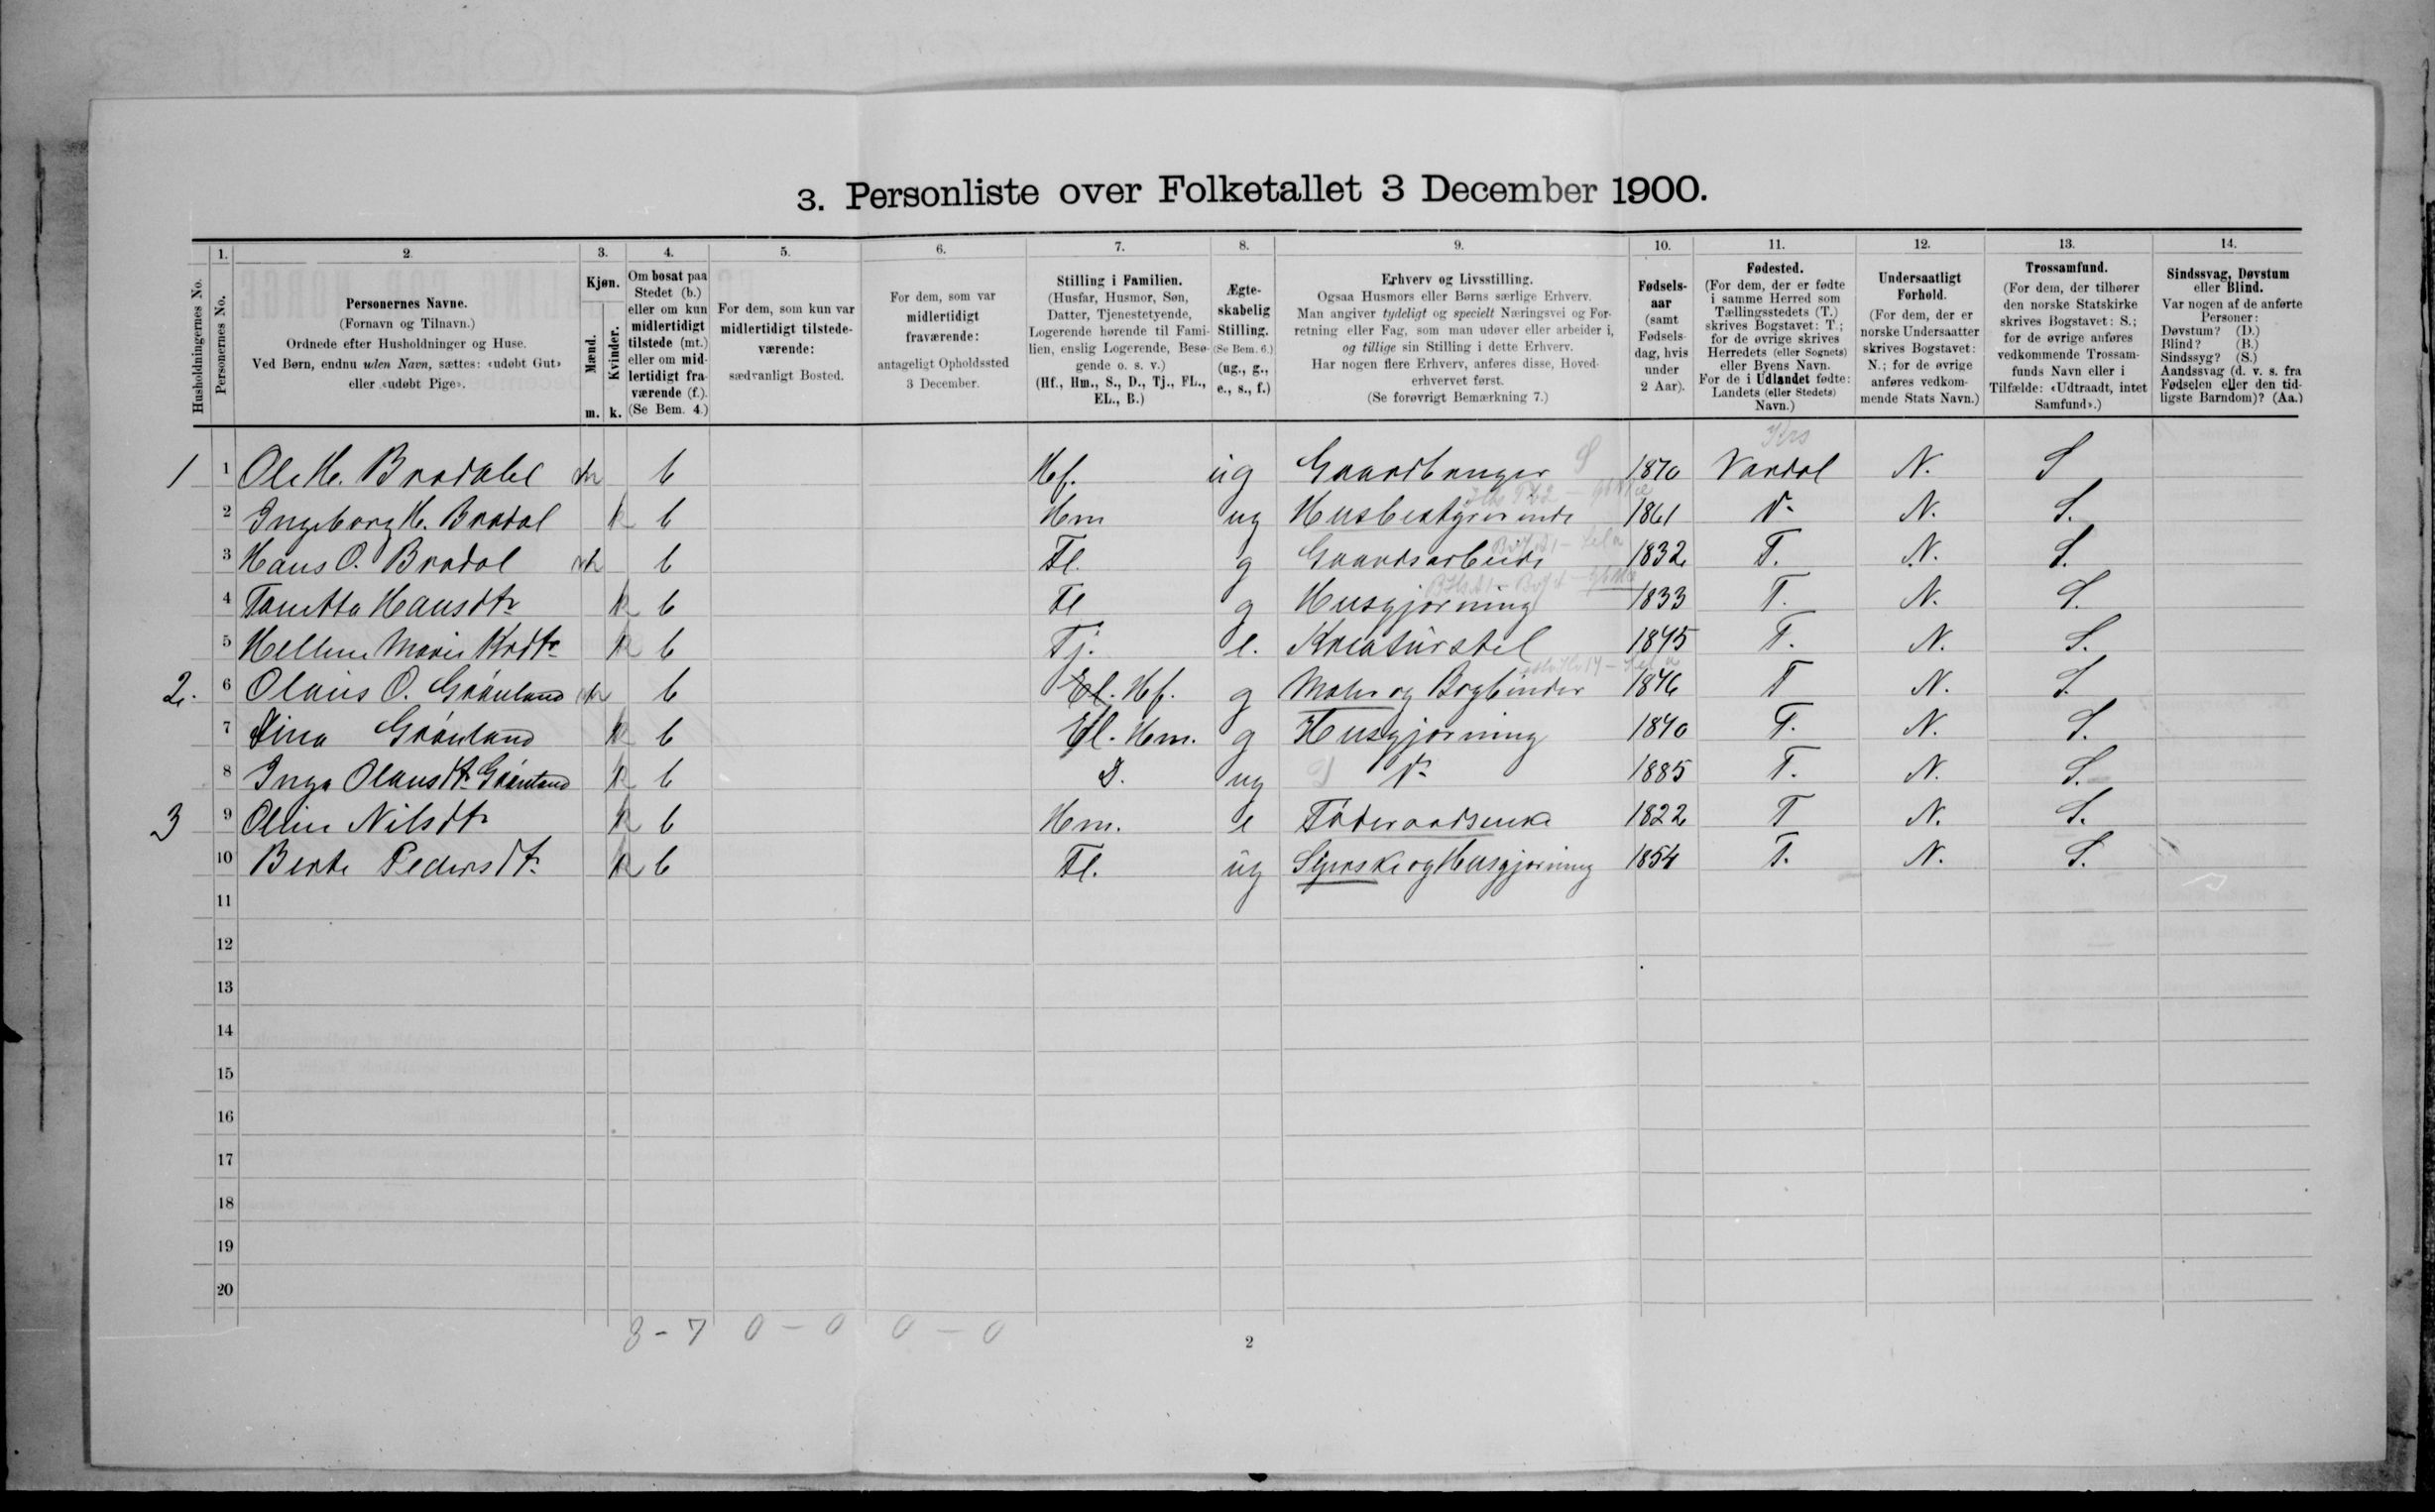 3. Personliste over Folketallet 3 December 1900.
1. 2. 3. 4. 5. 6. 7. 8. 9. 10. 11. 12. 13. 14.
Husholdningernes No.
Personernes No.
Personernes Navne.
(Fornavn og Tilnavn.)
Ordnede efter Husholdninger og Huse.
Ved Børn, endnu uden Navn, sættes: «udøbt Gut»
eller «udøbt Pige».
Kjøn.
Mænd.
Kvinder.
m. k.
Om bosat paa
Stedet (b.)
eller om kun
midlertidigt
tilstede (mt.)
eller om mid-
lertidigt fra-
værende (f.).
(Se Bem. 4.)
For dem, som kun var
midlertidigt tilstede-
værende:
sædvanligt Bosted.
For dem, som var
midlertidigt
fraværende:
antageligt Opholdssted
3 December.
Stilling i Familien.
(Husfar, Husmor, Søn,
Datter, Tjenestetyende,
Logerende hørende til Fami-
lien, enslig Logerende, Besø-
gende o. s. v.)
(Hf., Hm., S., D., Tj., FL.,
EL., B.)
Ægte-
skabelig
Stilling.
(Se Bem. 6.)
(ug., g.,
e., s., f.)
Erhverv og Livsstilling.
Ogsaa Husmors eller Børns særlige Erhverv.
Man angiver tydeligt og specielt Næringsvei og For-
retning eller Fag, som man udøver eller arbeider i,
og tillige sin Stilling i dette Erhverv.
Har nogen flere Erhverv, anføres disse, Hoved-
erhvervet først.
(Se forøvrigt Bemærkning 7.)
Fødsels-
aar
(samt
Fødsels-
dag, hvis
under
2 Aar).
Fødested.
(For dem, der er fødte
i samme Herred som
Tællingsstedets (T.)
skrives Bogstavet: T.;
for de øvrige skrives
Herredets (eller Sognets)
eller Byens Navn.
For de i Udlandet fødte:
Landets (eller Stedets)
Navn.)
Undersaatligt
Forhold.
(For dem, der er
norske Undersaatter
skrives Bogstavet:
N.; for de øvrige
anføres vedkom-
mende Stats Navn.)
Trossamfund.
(For dem, der tilhører
den norske Statskirke
skrives Bogstavet: S.;
for de øvrige anføres
vedkommende Trossam-
funds Navn eller i
Tilfælde: «Udtraadt, intet
Samfund».)
Sindssvag, Døvstum
eller Blind.
Var nogen af de anførte
Personer:
Døvstum? (D.)
Blind? (B.)
Sindssyg? (S.)
Aandssvag (d. v. s. fra
Fødselen eller den tid-
ligste Barndom)? (Aa.)
1 1 Ole H. Bradal m b Hf. ug Gaardbruger S 1870 Vardal N. S
2 Ingeborg H. Bradal k b Hm ug Husbestyrerinde 1861 N. S.
3 Hans O. Bradal m b Fl. g Gaardsarbeide 1832 T. N. S.
4 Hansdtr k b Fl g Husgjørning 1833 T. N. S.
5 k b Tj. e. Kreaturstel 1845 T. N. S.
2. 6 Olaus O. Grönland m b El. Hf. g Maler og Bogbinder 1846 T N. S.
7 Grönland k b El. Hm. g Husgjørning 1840 T. N. S.
8 Inga Olausdtr Grönland k b D. ug 1885 T. N. S.
3 9 Oline Nilsdtr k b Hm. e Föderaadsenke 1822 T N. S.
10 Berte Pedersdtr. k b Fl. ug Syerske og Husgjørning 1854 T. N. S.
11
12
13
14
15
16
17
18
19
20
3 - 7 0 - 0 0 - 0
2